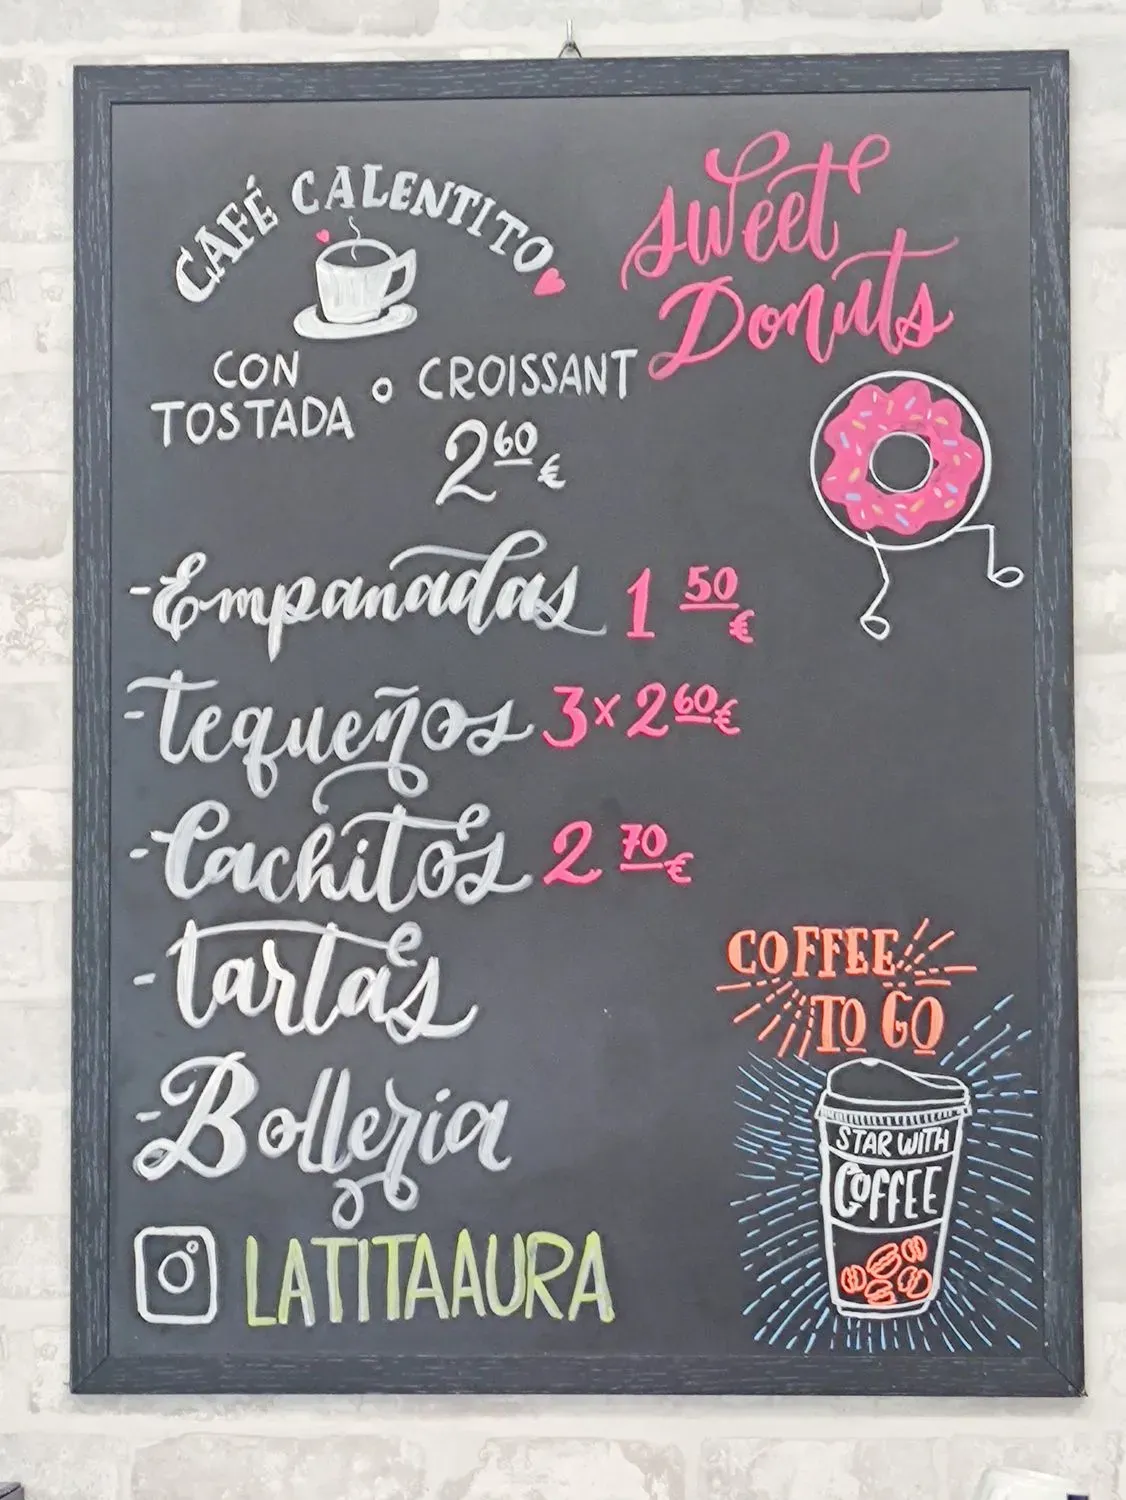 CAFÉ CALENTITO
CON
TOSTADA o CROISSANT
2 60 €
sweet
Donuts
-Empanadas 1 50 €
-Tequeños 3 x 2 60 €
-Cachitos 2 70 €
-tartas
-Bolleria
LATITAAURA
COFFEE
TO GO
STAR WITH
COFFEE